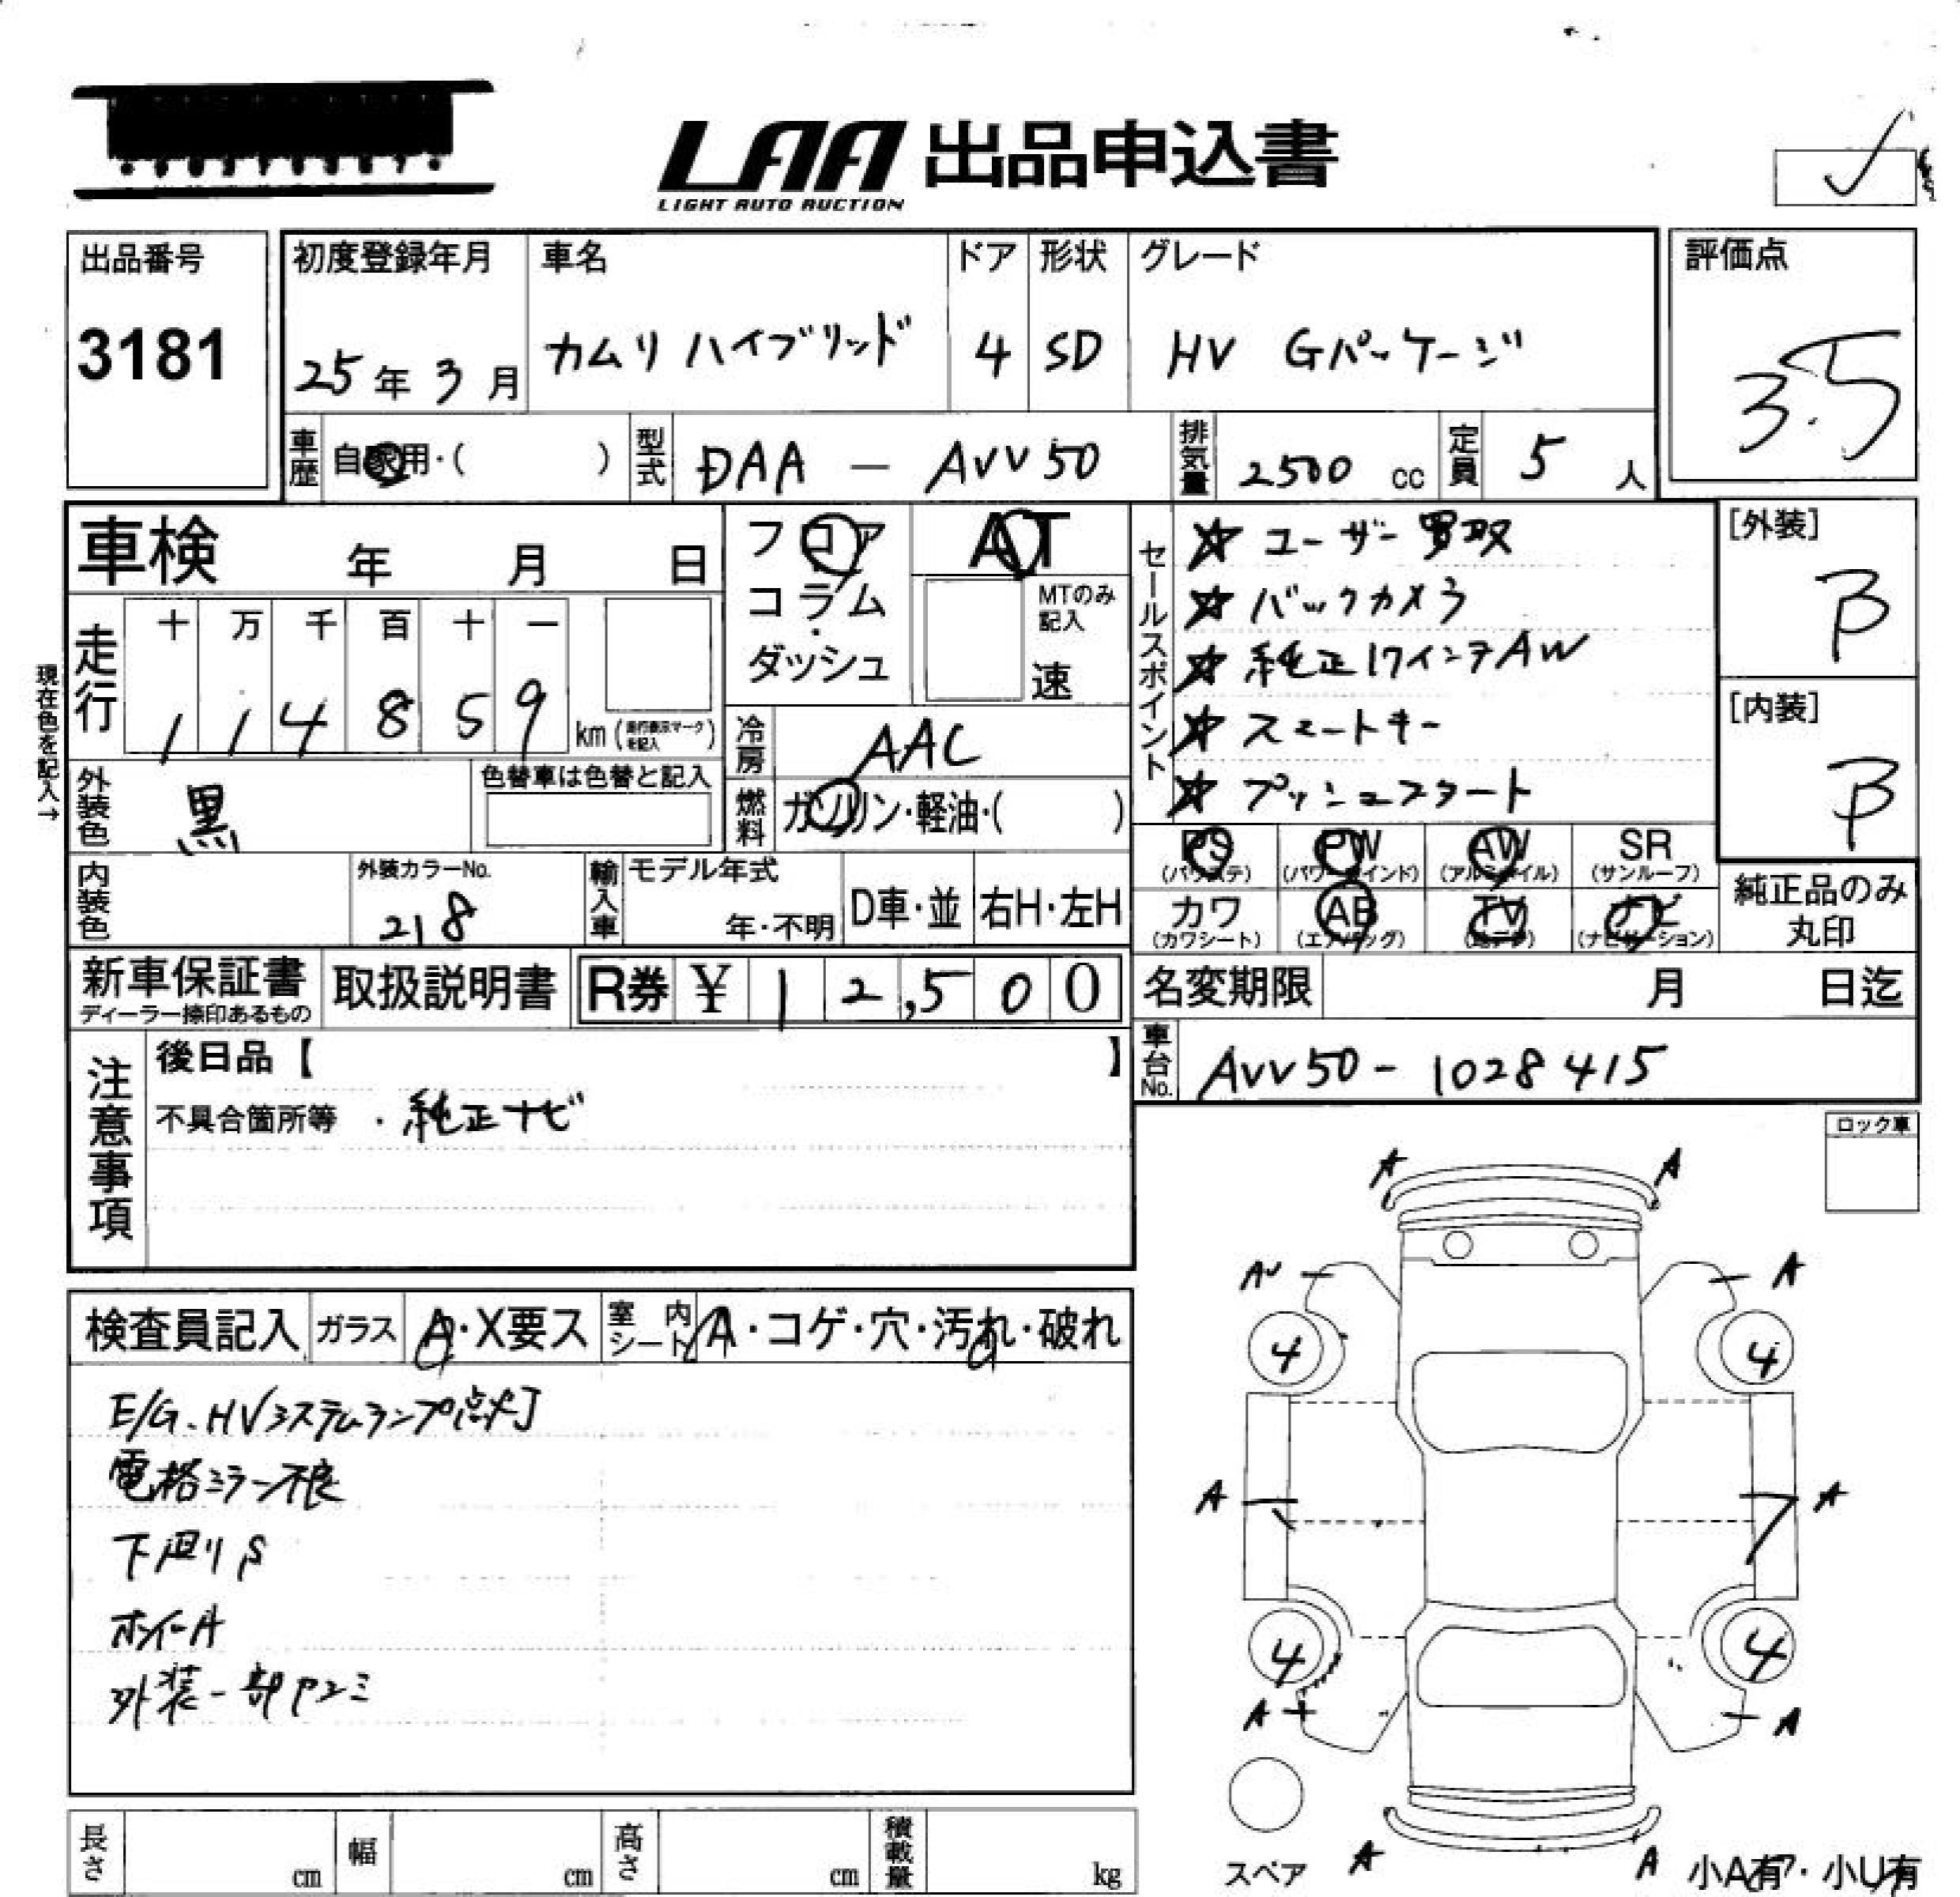 LAA 出品申込書
LIGHT AUTO AUCTION
出品番号
3181
初度登録年月
25年3月
車名
カムリ ハイブリッド
ドア
4
形状
SD
グレード
HV Gパッケージ
評価点
3.5
車歴 自家用・( )
型式 DAA - AVV50
排気量 2500 cc
定員 5 人
車検 年 月 日
フロア
コラム
・
ダッシュ
AT
MTのみ記入
速
セールスポイント
☆ ユーザー買取
☆ バックカメラ
☆ 純正17インチAW
☆ スマートキー
☆ プッシュスタート
[外装]
B
[内装]
B
現在色を記入→
走行
十 万 千 百 十 一
1 1 4 8 5 9 km (走行表示マークを記入)
冷房 AAC
外装色 黒
色替車は色替と記入
燃料 ガソリン・軽油・( )
PS (パワステ)
PW (パワーウインド)
AW (アルミホイル)
SR (サンルーフ)
カワ (カワシート)
AB (エアバッグ)
TV (地デジ)
ナビ (ナビゲーション)
純正品のみ
丸印
内装色
外装カラーNo.
218
輸入車
モデル年式
年・不明
D車・並
右H・左H
新車保証書
ディーラー捺印あるもの
取扱説明書
R券 ¥ 12,500
名変期限 月 日迄
車台No. AVV50-1028415
注意事項
後日品【 】
不具合箇所等 ・純正ナビ
ロック車
検査員記入
ガラス A・X要ス
室内シート A・コゲ・穴・汚れ・破れ
E/G、HVシステムランプ点灯
電格ミラー不良
下回りS
ホイールA
外装一部ヤスミ
A A
AU A
4 4
A A
4 4
A A
スペア A A
小A有・小U有
長さ cm
幅 cm
高さ cm
積載量 kg